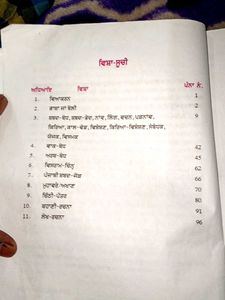 ਵਿਸ਼ਾ-ਸੂਚੀ
ਅਧਿਆਇ ਵਿਸ਼ਾ ਪੰਨਾ ਨੰ.
1. ਵਿਆਕਰਨ 1
2. ਭਾਸ਼ਾ ਜਾਂ ਬੋਲੀ 2
3. ਸ਼ਬਦ-ਬੋਧ, ਸ਼ਬਦ-ਭੇਦ, ਨਾਂਵ, ਲਿੰਗ, ਵਚਨ, ਪੜਨਾਂਵ, 9
ਕਿਰਿਆ, ਕਾਲ-ਵੰਡ, ਵਿਸ਼ੇਸ਼ਣ, ਕਿਰਿਆ-ਵਿਸ਼ੇਸ਼ਣ, ਸੰਬੰਧਕ,
ਯੋਜਕ, ਵਿਸਮਕ
4. ਵਾਕ-ਬੋਧ 42
5. ਅਰਥ-ਬੋਧ 45
6. ਵਿਸਰਾਮ-ਚਿੰਨ੍ਹ 62
7. ਪੰਜਾਬੀ ਸ਼ਬਦ-ਜੋੜ 66
8. ਮੁਹਾਵਰੇ-ਅਖਾਣ 70
9. ਚਿੱਠੀ-ਪੱਤਰ 80
10. ਕਹਾਣੀ-ਰਚਨਾ 91
11. ਲੇਖ-ਰਚਨਾ 96